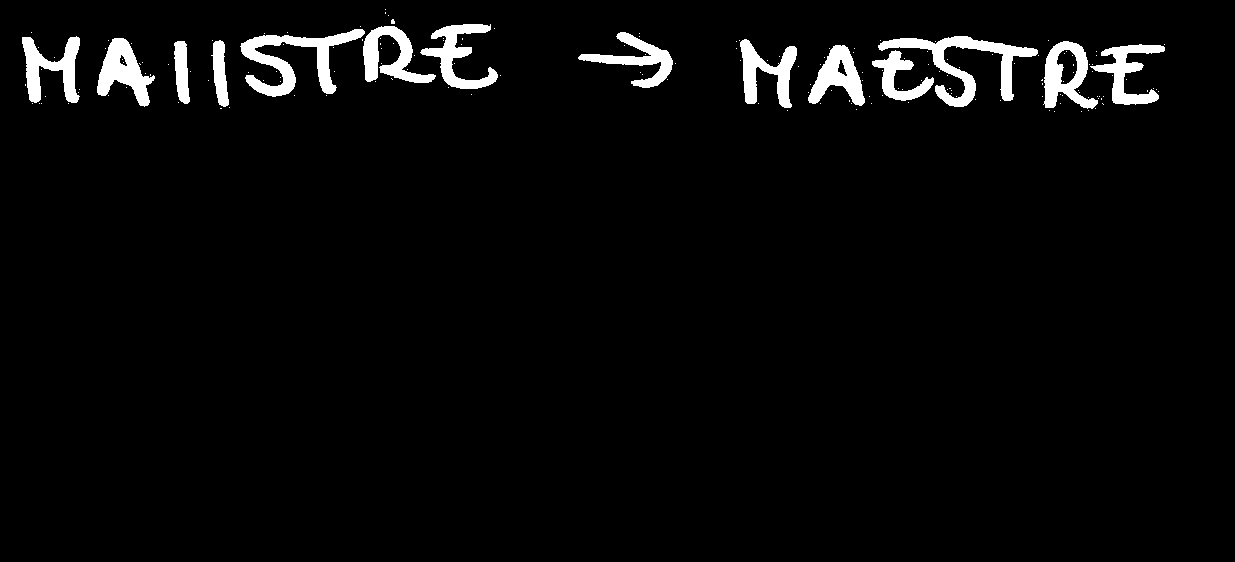 MAIISTRE → MAESTRE